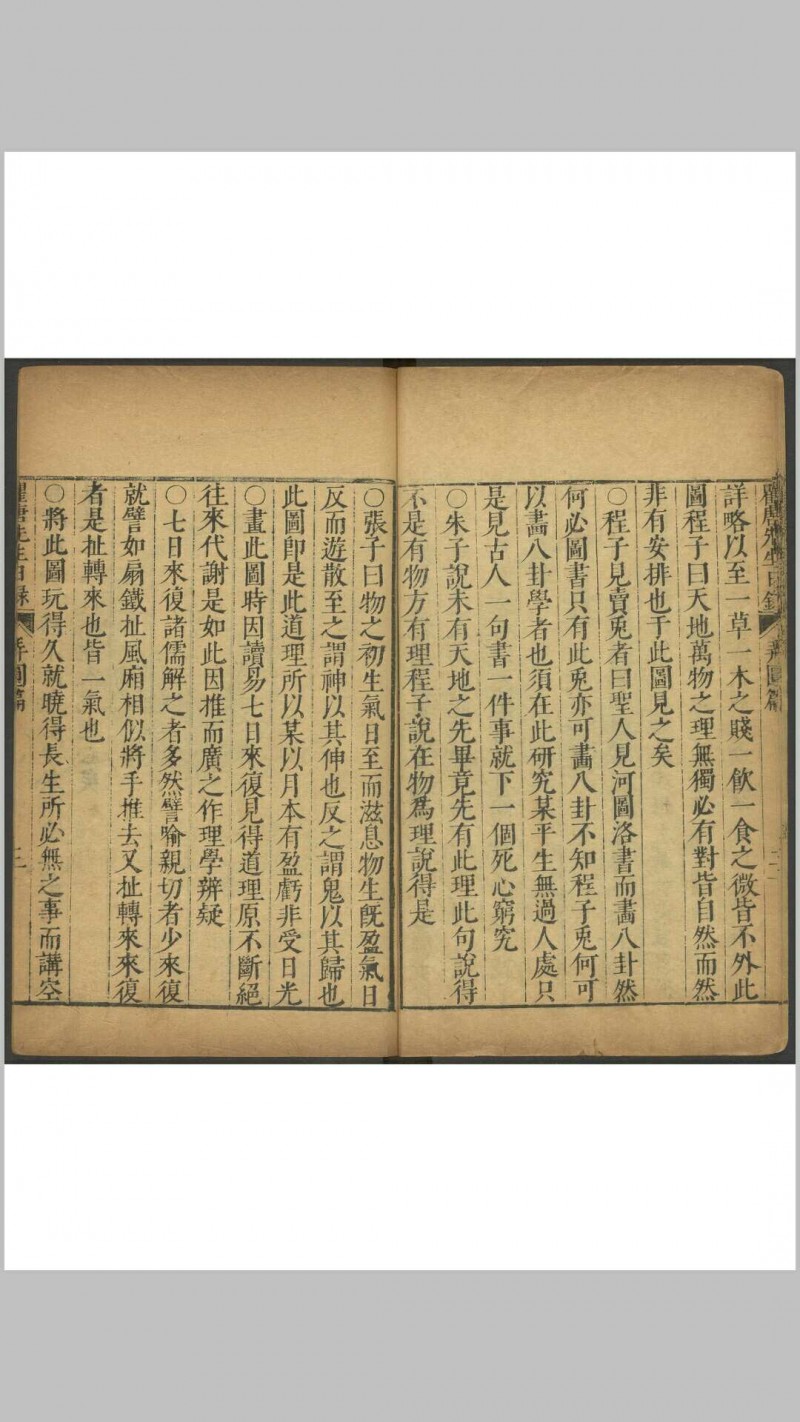 詳略以至一草一木之賤一飲一食之微皆不外此
圖程子曰天地萬物之理無獨必有對皆自然而然
非有安排也于此圖見之矣
○程子見賣兎者曰聖人見河圖洛書而畵八卦然
何必圖書只有此兎亦可畵八卦不知程子兎何可
以畵八卦學者也須在此研究某平生無過人處只
是見古人一句書一件事就下一個死心窮究
○朱子說未有天地之先畢竟先有此理此句說得
不是有物方有理程子說在物爲理說得是
○張子曰物之初生氣日至而滋息物生旣盈氣日
反而遊散至之謂神以其伸也反之謂鬼以其歸也
此圖卽是此道理所以某以月本有盈虧非受日光
○畫此圖時因讀易七日來復見得道理原不斷絕
往來代謝是如此因推而廣之作理學辨疑
○七日來復諸儒解之者多然譬喻親切者少來復
就譬如扇鐵扯風廂相似將手推去又扯轉來來復
者是扯轉來也皆一氣也
○將此圖玩得久就曉得長生所必無之事而講空
瞿唐先生日錄 弄圓篇